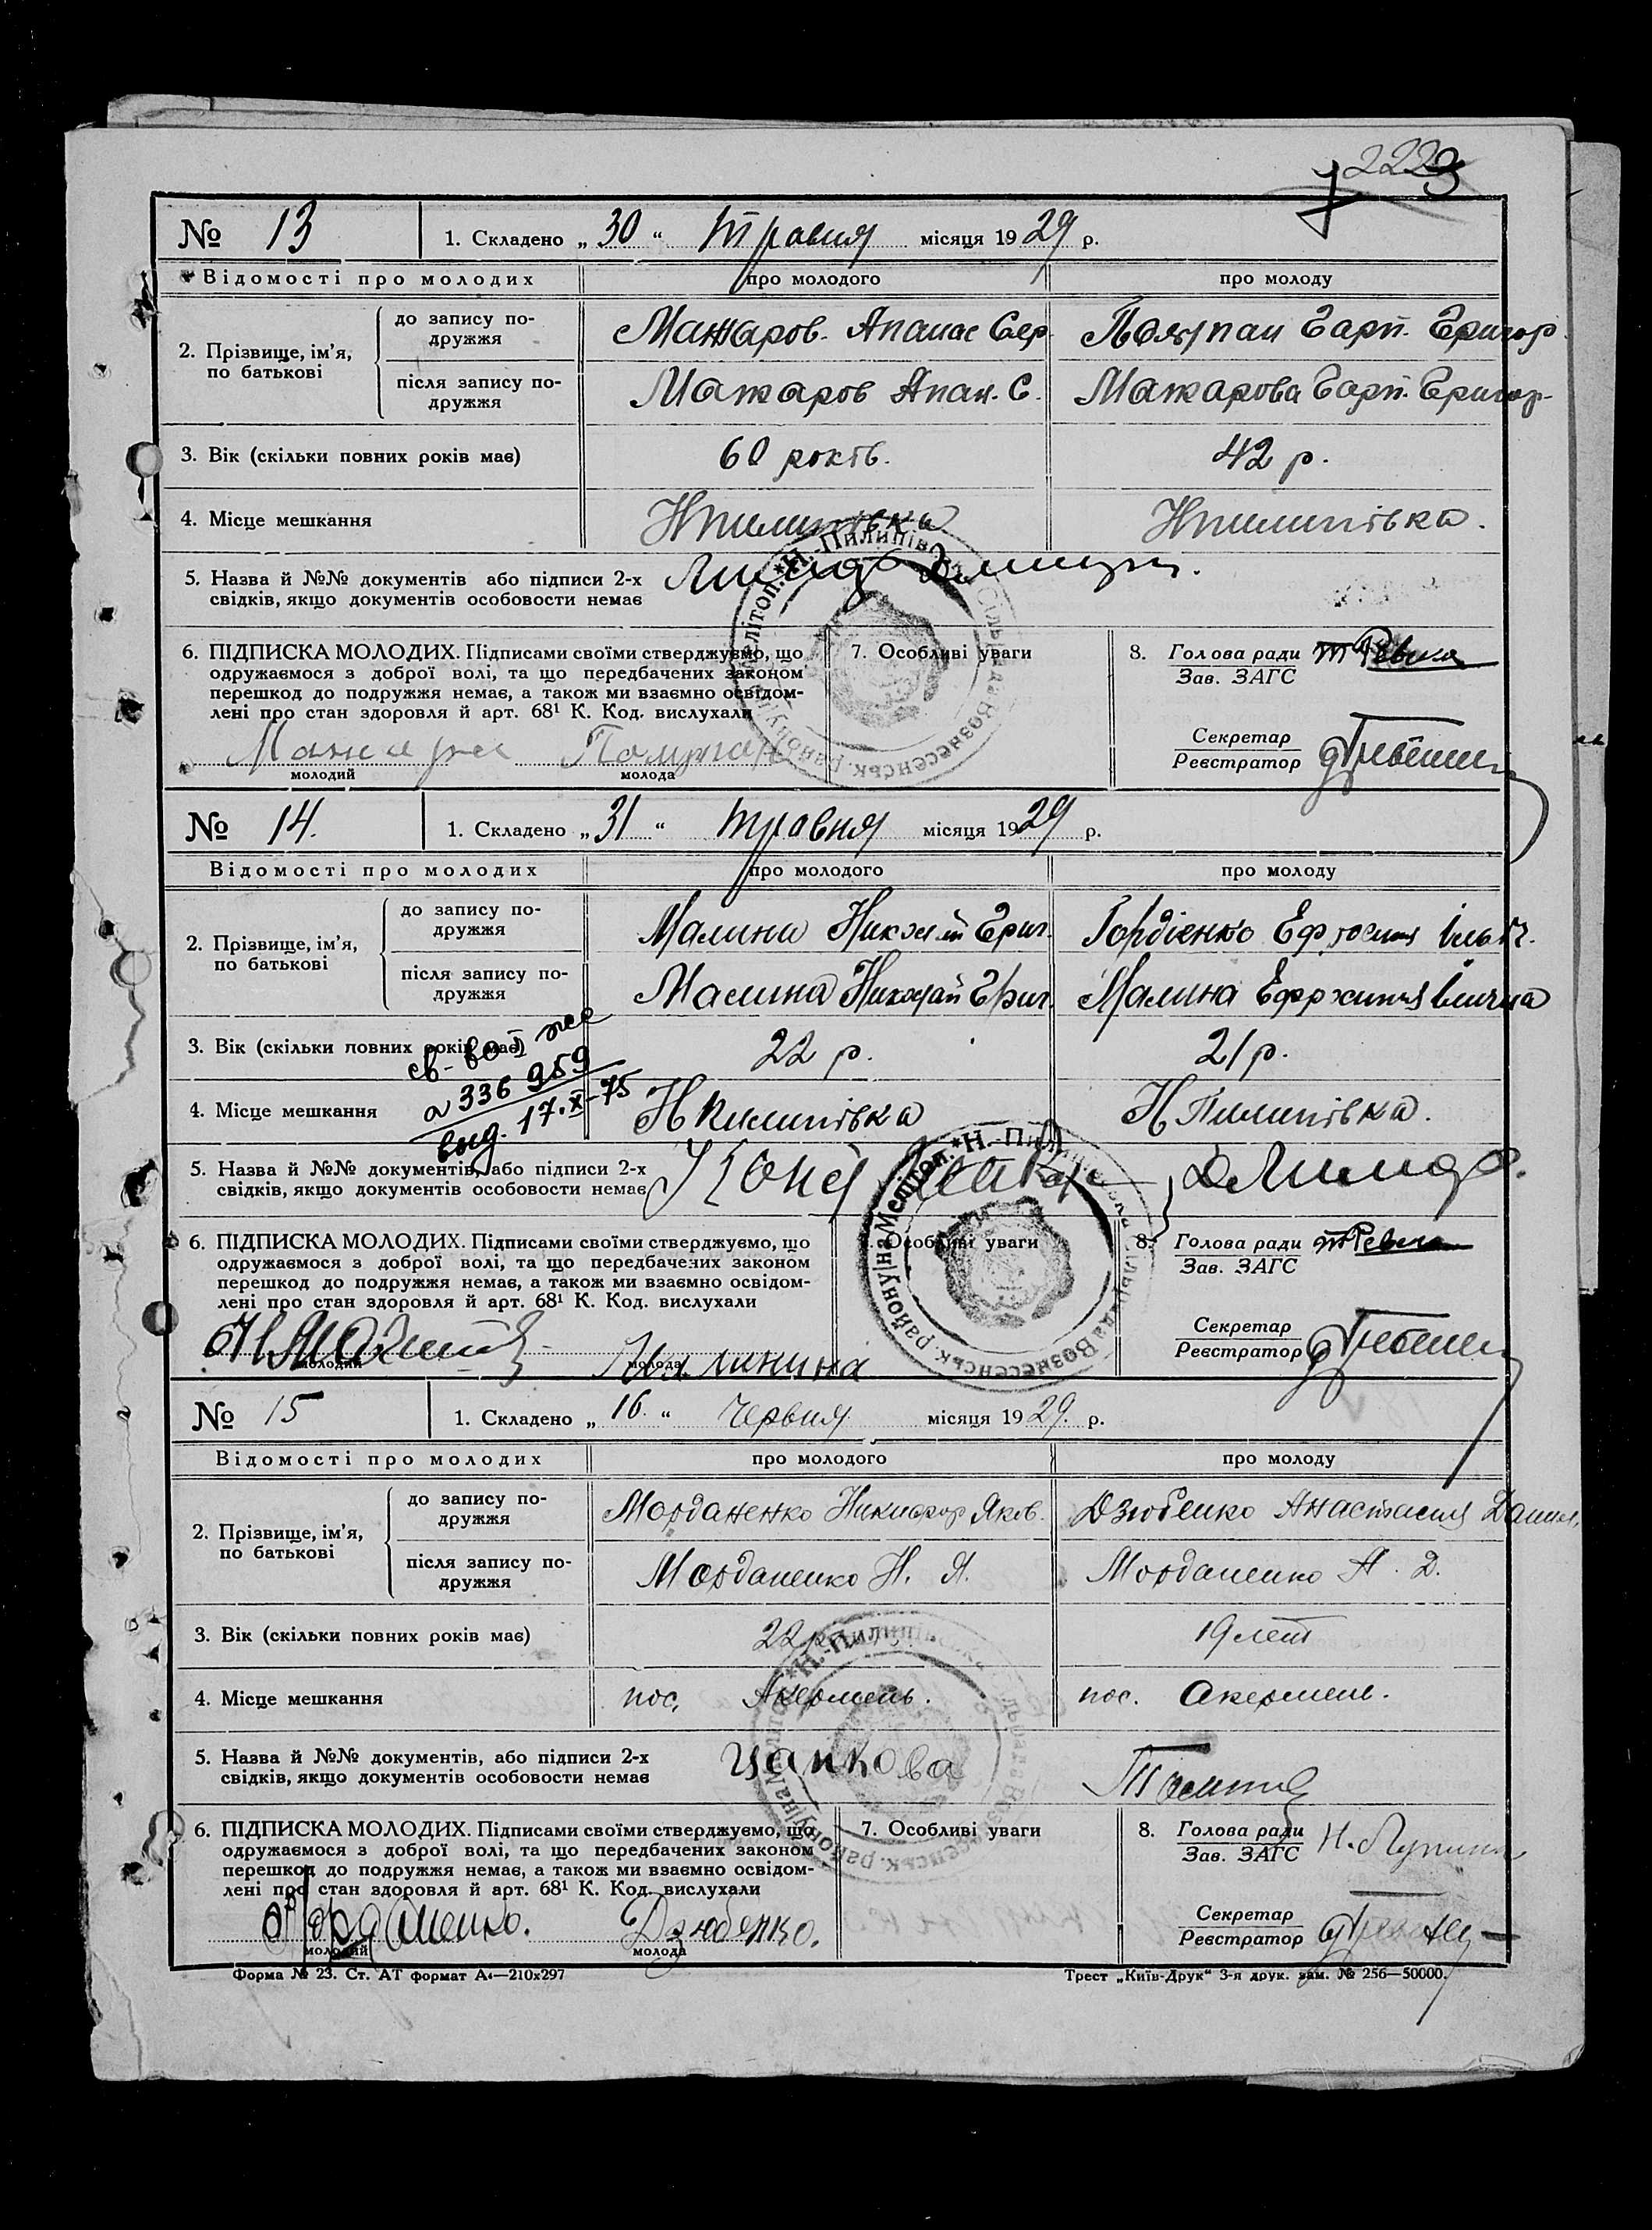 2223
№ 13 1. Складено „ 30 “ травня місяця 19 29 р.
Відомості про молодих про молодого про молоду
2. Прізвище, ім’я, по батькові
до запису подружжя Мажаров Апанас Сер.
після запису подружжя Мажаров Апан. С. Мажарова Гарп. Григор.
3. Вік (скільки повних років має) 60 років. 42 р.
4. Місце мешкання Нпилипівка Нпилипівка.
5. Назва й №№ документів або підписи 2-х
свідків, якщо документів особовости немає
6. ПІДПИСКА МОЛОДИХ. Підписами своїми стверджуємо, що
одружаємося з доброї волі, та що передбачених законом
перешкод до подружжя немає, а також ми взаємно освідом-
лені про стан здоровля й арт. 68¹ К. Код. вислухали
молодий молода
7. Особливі уваги
8. Голова ради
Зав. ЗАГС
Секретар
Реєстратор
№ 14. 1. Складено „ 31 “ травня місяця 19 29 р.
Відомості про молодих про молодого про молоду
2. Прізвище, ім’я, по батькові
до запису подружжя Малина Николай Григ. Гордієнко
після запису подружжя Малина Николай Григ. Малина
3. Вік (скільки повних років має) 22 р. 21 р.
св-во І же
336 959
выд. 17.X-75
4. Місце мешкання Нпилипівка Н Пилипівка.
5. Назва й №№ документів, або підписи 2-х
свідків, якщо документів особовости немає
6. ПІДПИСКА МОЛОДИХ. Підписами своїми стверджуємо, що
одружаємося з доброї волі, та що передбачених законом
перешкод до подружжя немає, а також ми взаємно освідом-
лені про стан здоровля й арт. 68¹ К. Код. вислухали
молодий молода
Особливі уваги
8. Голова ради
Зав. ЗАГС
Секретар
Реєстратор
№ 15 1. Складено „ 16. “ червня місяця 19 29. р.
Відомості про молодих про молодого про молоду
2. Прізвище, ім’я, по батькові
до запису подружжя Морданенко Никифор Яков. Дзюбенко Анастасия Данил.
після запису подружжя Морданенко Н. Я. Морданенко А. Д.
3. Вік (скільки повних років має) 22 р. 19 лет
4. Місце мешкання пос. Акермень. пос. Акермень.
5. Назва й №№ документів, або підписи 2-х
свідків, якщо документів особовости немає цапкова
6. ПІДПИСКА МОЛОДИХ. Підписами своїми стверджуємо, що
одружаємося з доброї волі, та що передбачених законом
перешкод до подружжя немає, а також ми взаємно освідом-
лені про стан здоровля й арт. 68¹ К. Код. вислухали
Дзюбенко.
молодий молода
7. Особливі уваги
8. Голова ради
Зав. ЗАГС
Секретар
Реєстратор
Форма № 23. Ст. АТ формат А₄—210х297 Трест „Київ-Друк“ 3-я друк. зам. № 256—50000.